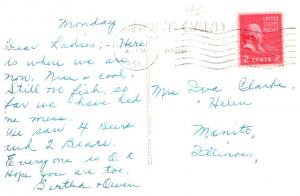 Monday
Dear Ladies;- Here
is where we are
now. Nice & cool.
Still no fish. so
far we have had
no mess.
We saw 4 Deers
and 2 Bears.
Everyone is O.K
Hope you are too.
Bertha & Owen
UNITED STATES POSTAGE
2 CENTS 2
Mrs Iva Clarke,
Helen
Manito,
Illinois,